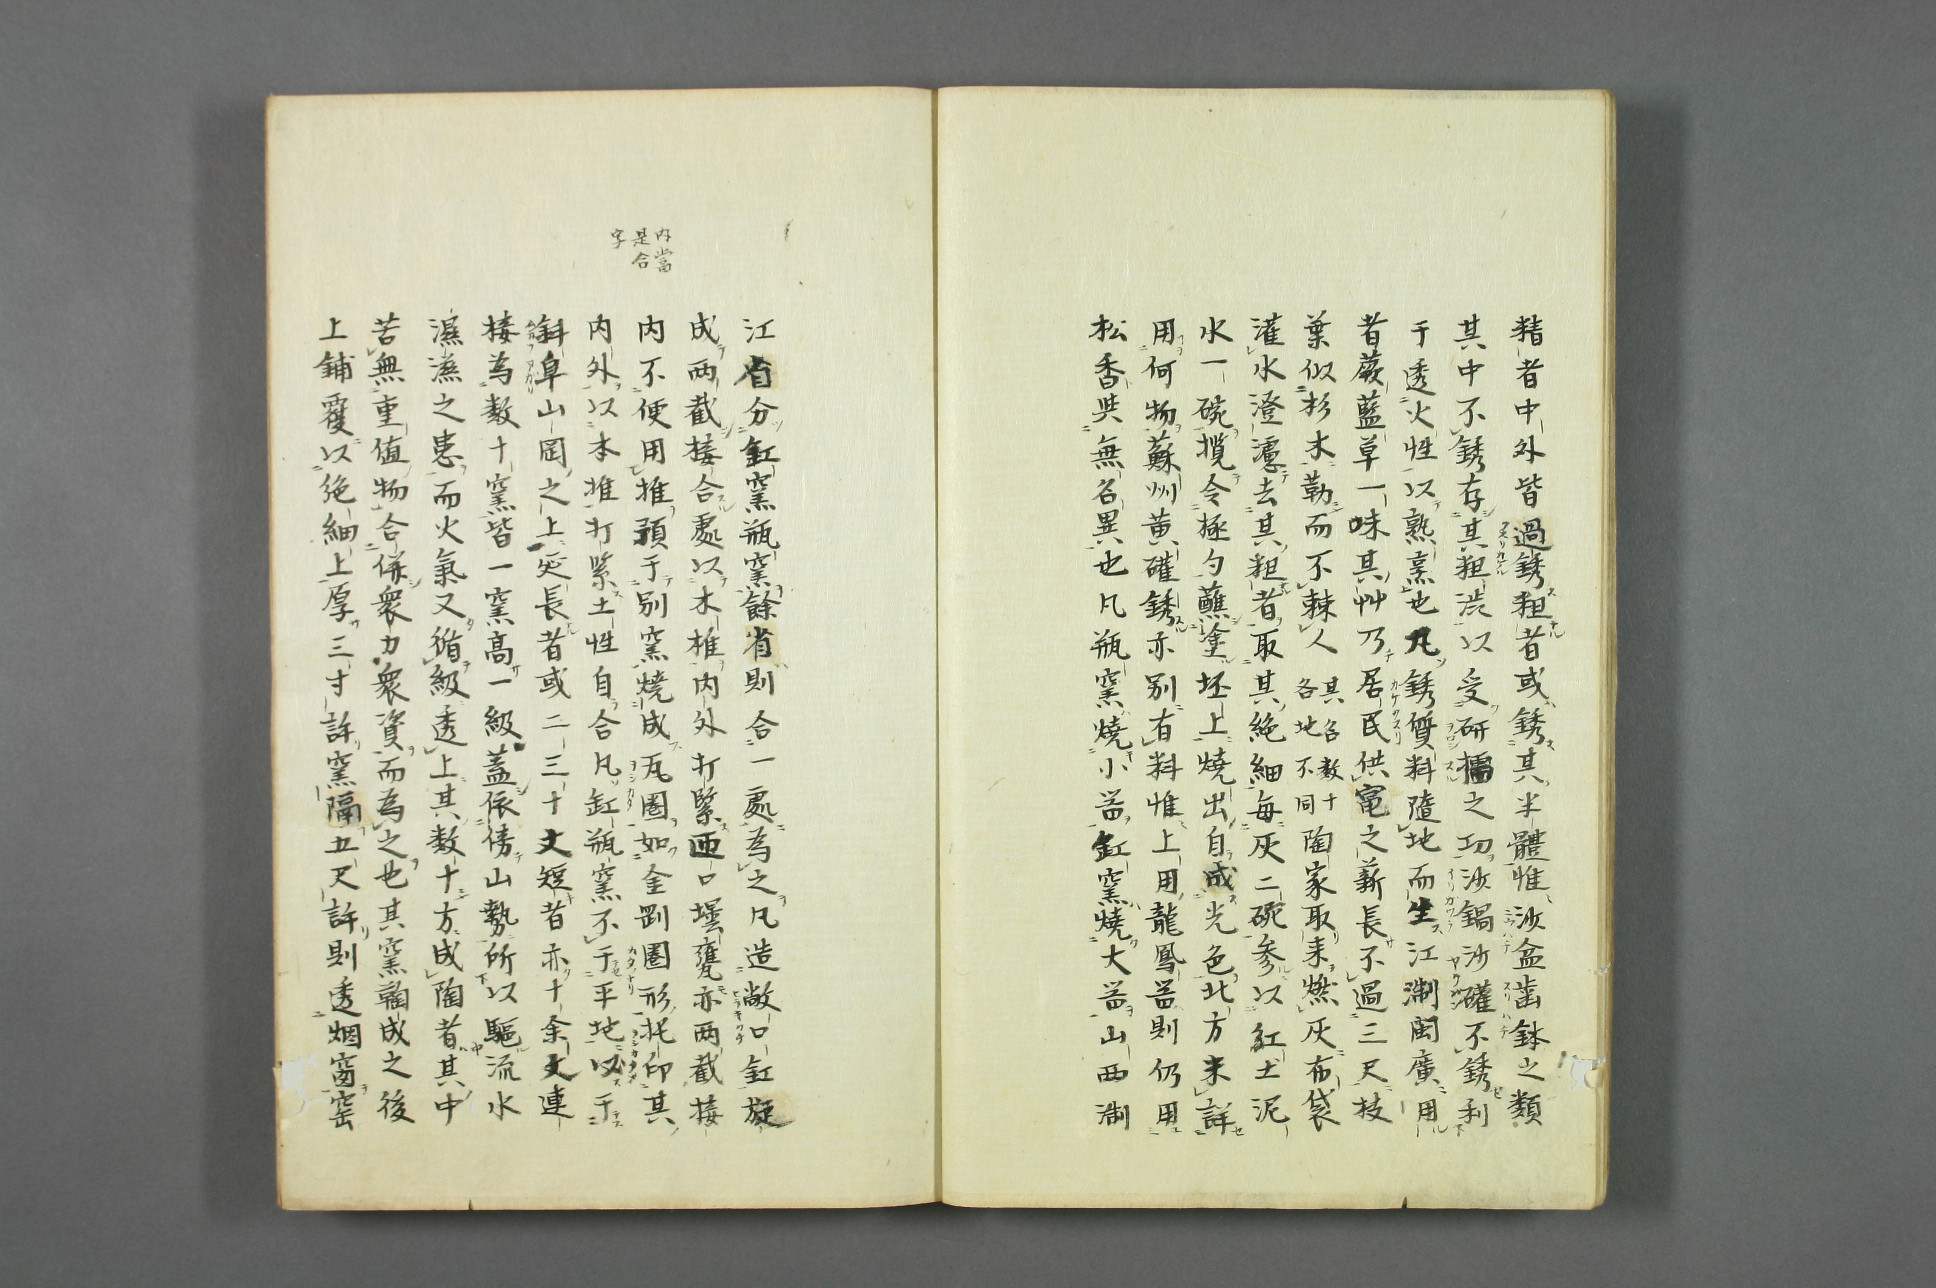 精者中外皆過銹粗者或銹其半體惟沙盆齒鉢之類
其中不銹存其粗渋以受研擂之功沙鍋沙礶不銹利
于透火性以熟烹也凡銹質料隨地而生江淛閩廣用
者蕨藍草一味其艸乃居民供竃之薪長不過三尺枝
葉似杉木勒而不棘人其名数十各地不同陶家取来燃灰布袋
灌水澄濾去其粗者取其絶細每灰二碗参以紅土泥
水一碗攪令極匀蘸塗坯上燒出自成光色北方未詳
用何物蘇州黄礶銹亦别有料惟上用龍鳳器則仍用
松香與無名異也凡瓶窯燒小器缸窯燒大器山西淛
江省分缸窯瓶窯餘省則合一處為之凡造敞口缸旋
成兩截接合處以木椎内外打緊匝口壜甕亦兩截接
内不便用椎預于别窯燒成瓦圈如金剛圈形托印其
内外以木椎打緊土性自合凡缸瓶窯不于平地必于
斜阜山岡之上延長者或二三十丈短者亦十余丈連
接為数十窯皆一窯高一級蓋依傍山勢所以驅流水
濕滋之患而火氣又循級透上其数十方成陶者其中
苦無重值物合併衆力衆資而為之也其窯鞠成之後
上鋪覆以絶細土厚三寸許窯隔五尺許則透烟窗窑
内當
是合
字